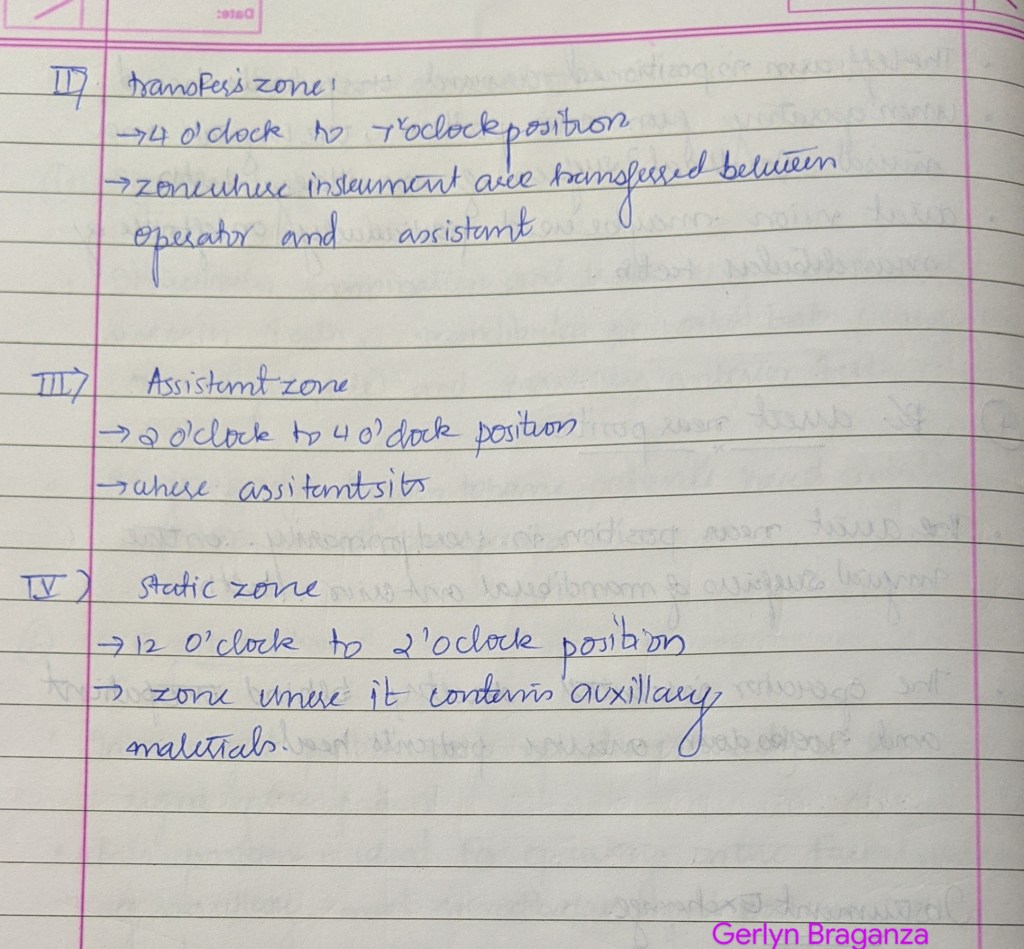 Date:
II) transfer zone:
→ 4 o'clock to 7'oclock position
→ zone where instrument are transferred between
operator and assistant
III) Assistant zone
→ 2 o'clock to 4 o'clock position
→ where assitant sits
IV) static zone
→ 12 o'clock to 2'oclock position
→ zone where it contains auxillary
materials.
Gerlyn Braganza